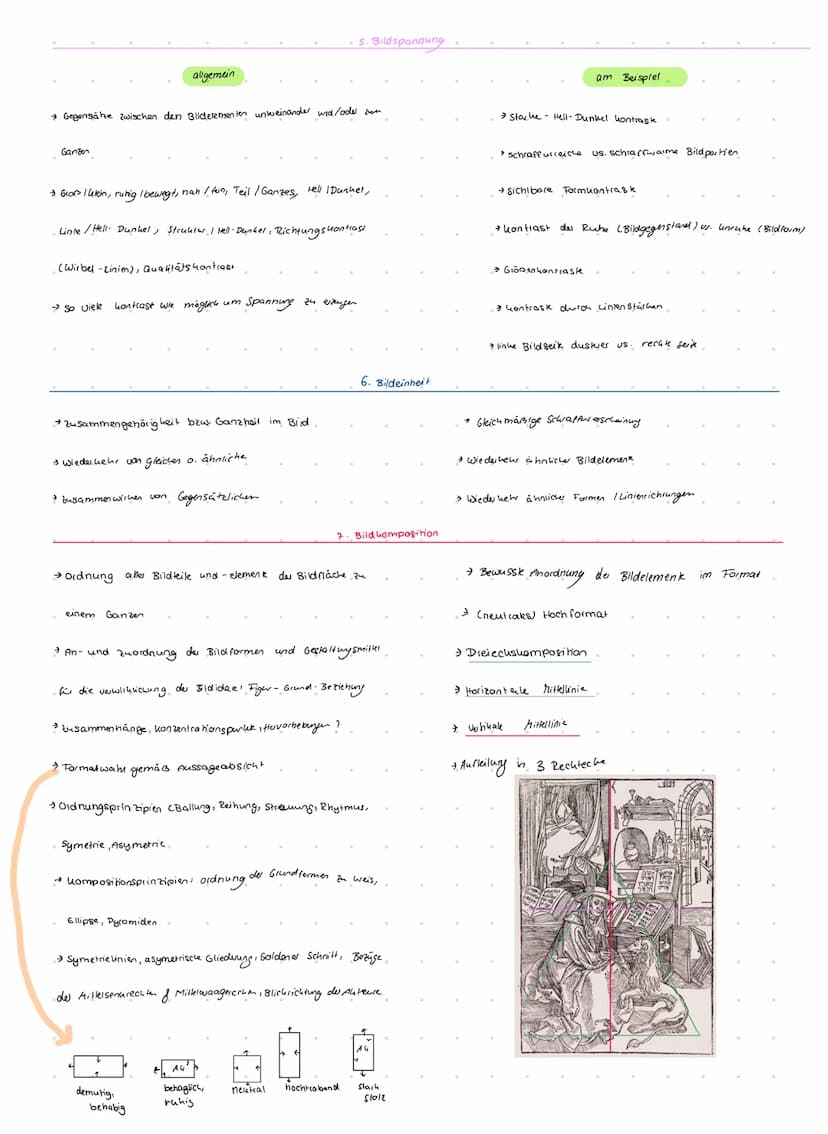 5. Bildspannung
allgemein
→ Gegensätze zwischen den Bildelementen untereinander und/oder zum
Ganzen
→ Groß/klein, ruhig/bewegt, nah/fern, Teil/Ganzes, Hell/Dunkel,
Linie/Hell-Dunkel, Struktur/Hell-Dunkel, Richtungskontrast
(Wirbel-Linien), Qualitätskontrast
→ so viele kontrast wie möglich um Spannung zu erzeugen
am Beispiel
→ Starke-Hell-Dunkel kontraste
→ schraffurreiche vs. schraffurarme Bildpartien
→ sichtbare Formkontraste
→ kontrast der Ruhe (Bildgegenstand) vs. Unruhe (Bildform)
→ Größenkontraste
→ kontraste durch Linienstärken
→ linke Bildseite dunkler vs. rechte Seite
6. Bildeinheit
→ Zusammengehörigkeit bzw Ganzheit im Bild
→ Wiederkehr von gleichen o. ähnliche
→ Zusammenwirken von Gegensätzlichen
→ Gleichmäßige Schraffurerscheinung
→ Wiederkehr ähnlicher Bildelemente
→ Wiederkehr ähnlicher Formen / Linienrichtungen
7. Bildkomposition
→ Ordnung aller Bildteile und -elemente der Bildfläche zu
einem Ganzen
→ An- und Zuordnung der Bildformen und Gestaltungsmittel
für die verwirklichung der Bildidee: Figur-Grund-Beziehung
→ Zusammenhänge, Konzentrationspunkte, Hervorhebungen?
→ Formatwahl gemäß Aussageabsicht
→ Ordnungsprinzipien (Ballung, Reihung, Streuung, Rhytmus,
Symetrie, Asymetrie
→ Kompositionsprinzipien: ordnung der Grundformen zu
Ellipse, Pyramiden
→ Symetrielinien, asymetrische Gliederung, Goldener Schnitt, Bezüge
der Mittelsenkrechten & Mittelwaagerechten, Blickrichtung der Akteure
demütig,
behäbig
A4
behaglich,
ruhig
neutral
hochtrabend
A4
stark
stolz
→ Bewusste Anordnung der Bildelemente im Format
→ (neutrales) Hochformat
→ Dreieckskomposition
→ Horizontale Mittellinie
→ Vertikale Mittellinie
→ Aufteilung in 3 Rechtecke